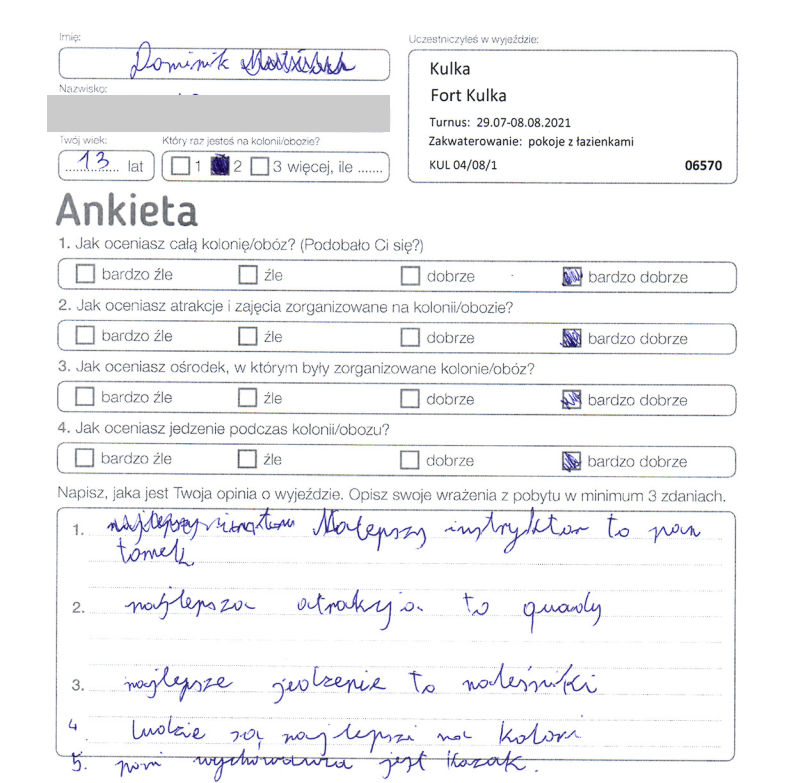 Imię:
Uczestniczyłeś w wyjeździe:
Dominik
Kulka
Nazwisko:
Fort Kulka
Turnus: 29.07-08.08.2021
Twój wiek:
Który raz jesteś na kolonii/obozie?
Zakwaterowanie: pokoje z łazienkami
13 lat
1 2 3 więcej, ile .......
KUL 04/08/1
06570
Ankieta
1. Jak oceniasz całą kolonię/obóz? (Podobało Ci się?)
bardzo źle źle dobrze bardzo dobrze
2. Jak oceniasz atrakcje i zajęcia zorganizowane na kolonii/obozie?
bardzo źle źle dobrze bardzo dobrze
3. Jak oceniasz ośrodek, w którym były zorganizowane kolonie/obóz?
bardzo źle źle dobrze bardzo dobrze
4. Jak oceniasz jedzenie podczas kolonii/obozu?
bardzo źle źle dobrze bardzo dobrze
Napisz, jaka jest Twoja opinia o wyjeździe. Opisz swoje wrażenia z pobytu w minimum 3 zdaniach.
1. Nalepszy instryktor to pan
tomek
2. najlepsza atrakcja to quady
3. najlepsze jedzenie to naleśniki
4. ludzie są najlepsi na koloni
5. pani wychowawca jest kozak.